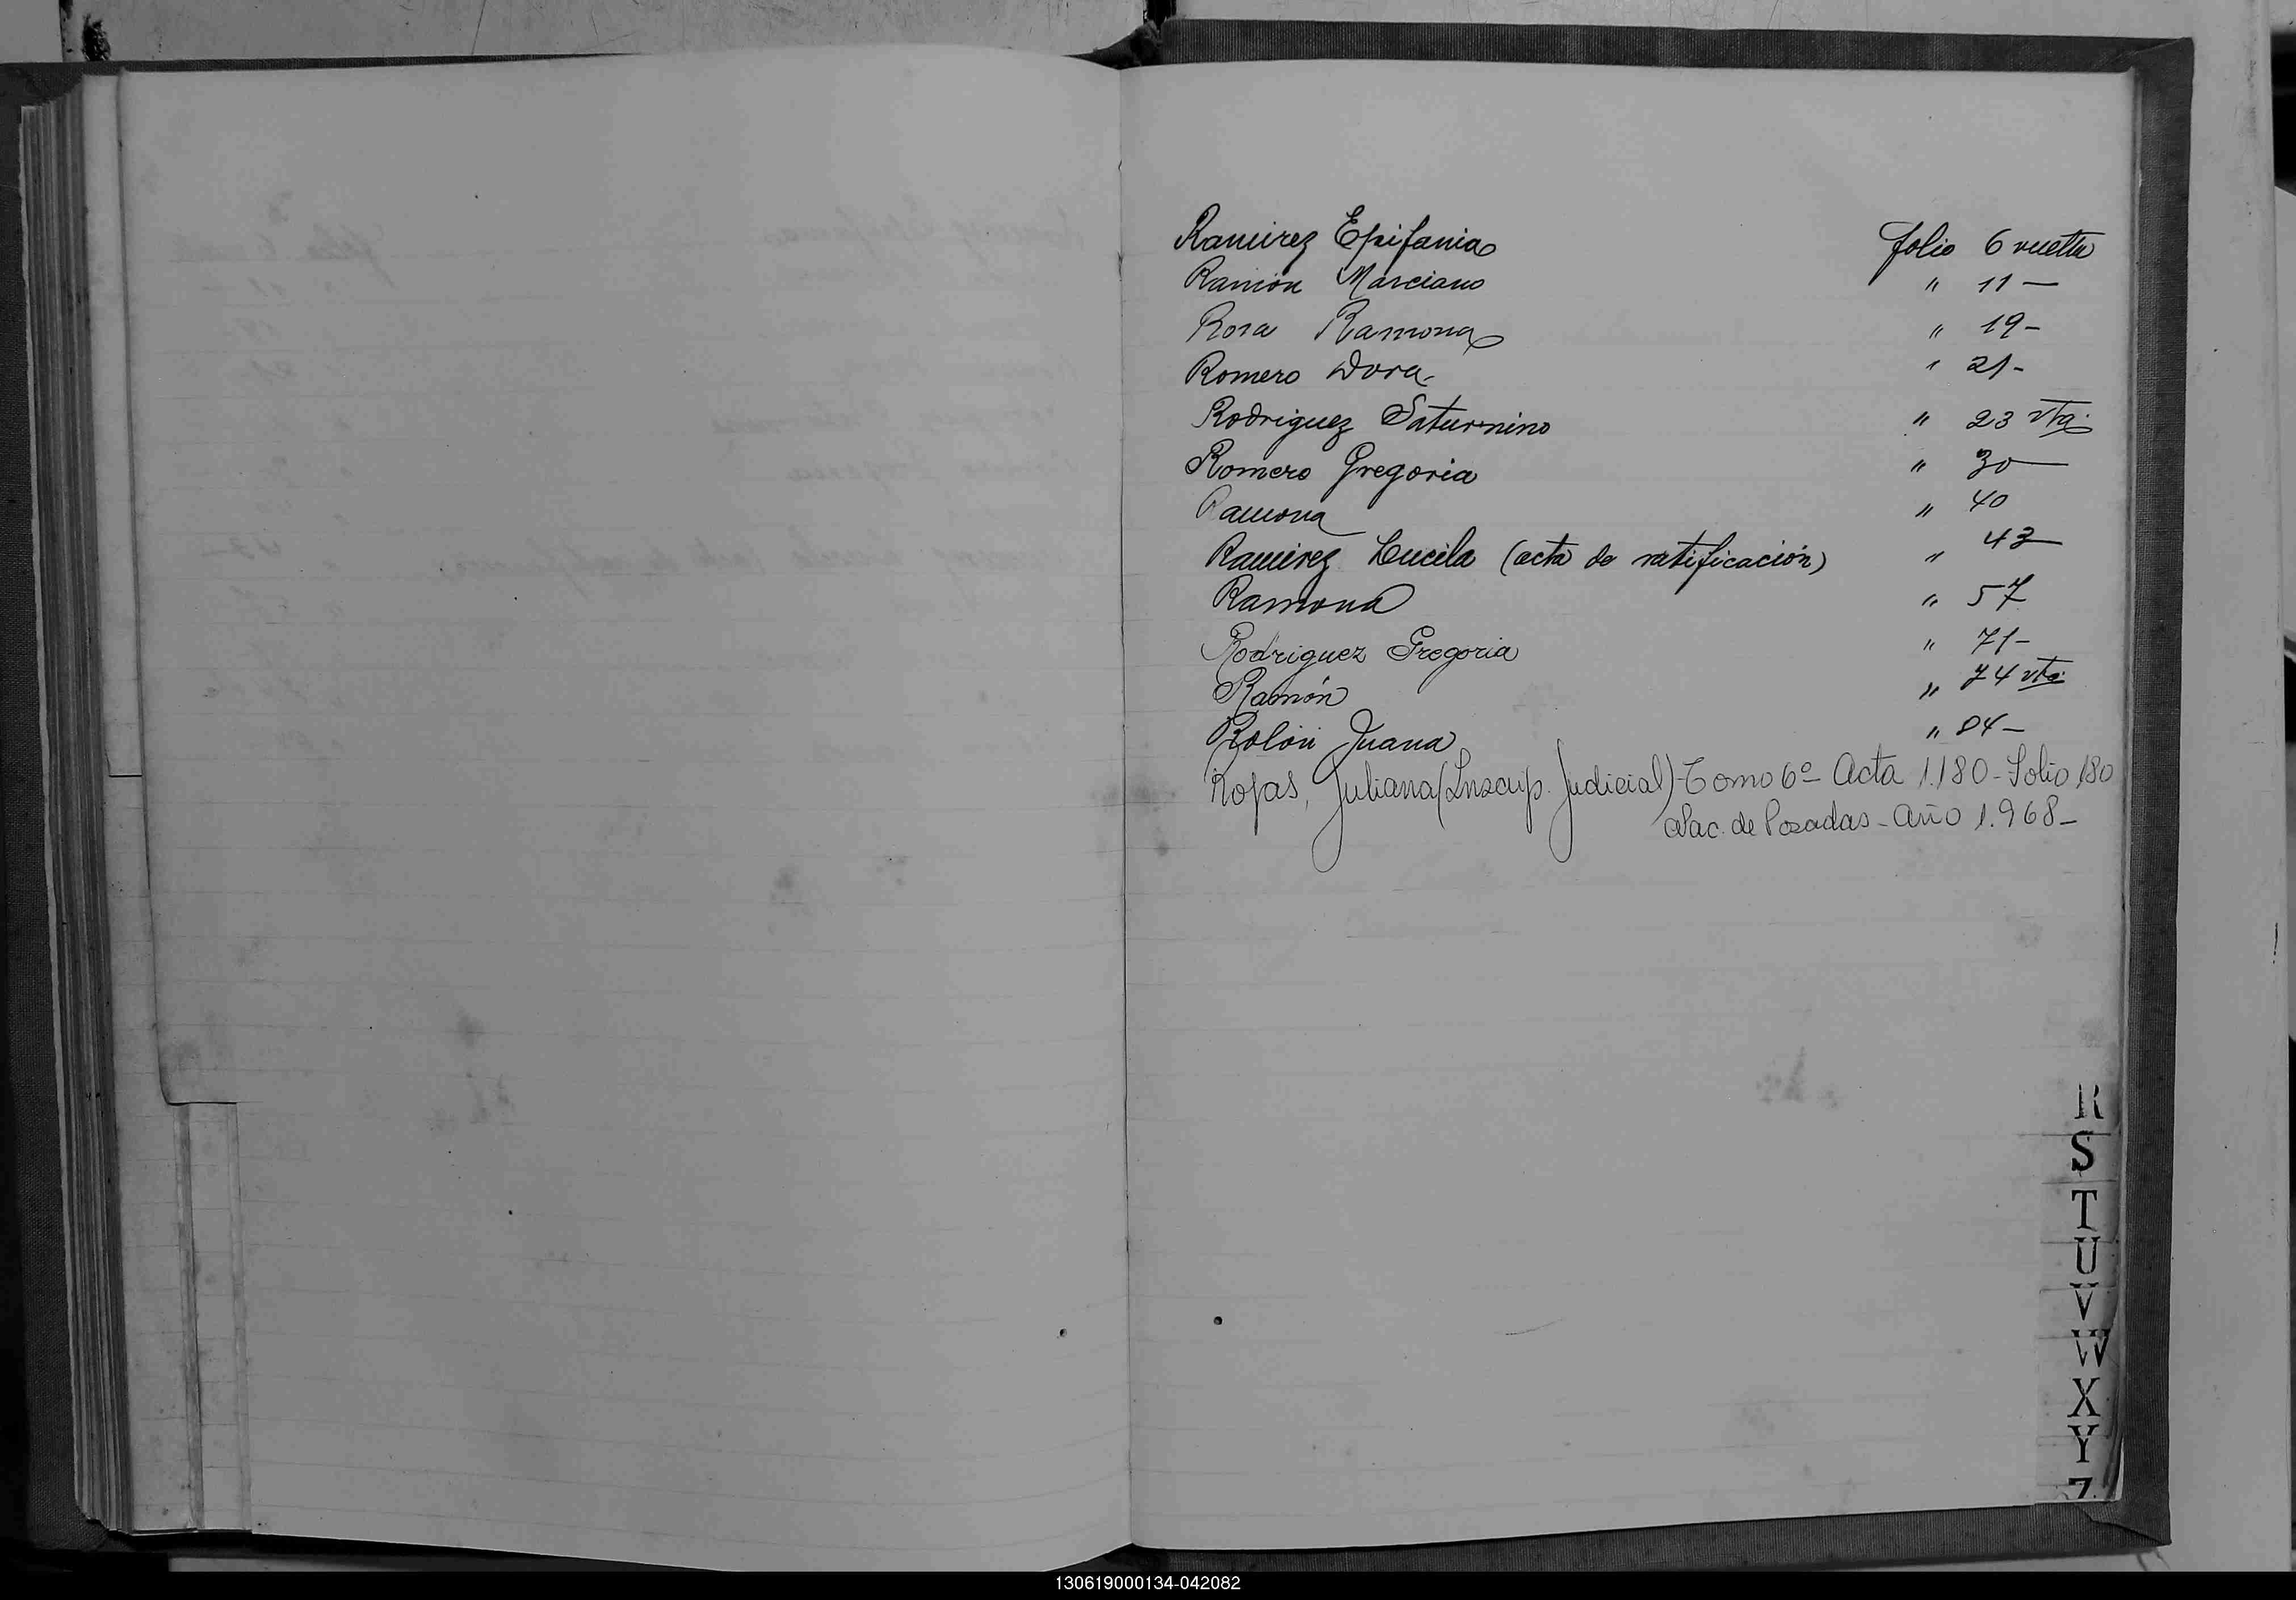 Ramirez Epifania folio 6 vuelta
Ramón Marciano " 11 —
Rosa Ramona " 19 -
Romero Dora - " 21 -
Rodriguez Saturnino " 23 vta.
Romero Gregoria " 30 —
Ramona " 40
Ramirez Lucila (acta de ratificación) " 43 —
Ramona " 57
Rodriguez Gregoria " 71 -
Ramón " 74 vta.
Rolón Juana " 84 -
Rojas, Juliana (Inscrip. Judicial) - Tomo 6º - Acta 1.180 - Folio 180
Nac. de Posadas - Año 1.968 -
R
S
T
U
V
W
X
Y
Z
130619000134-042082